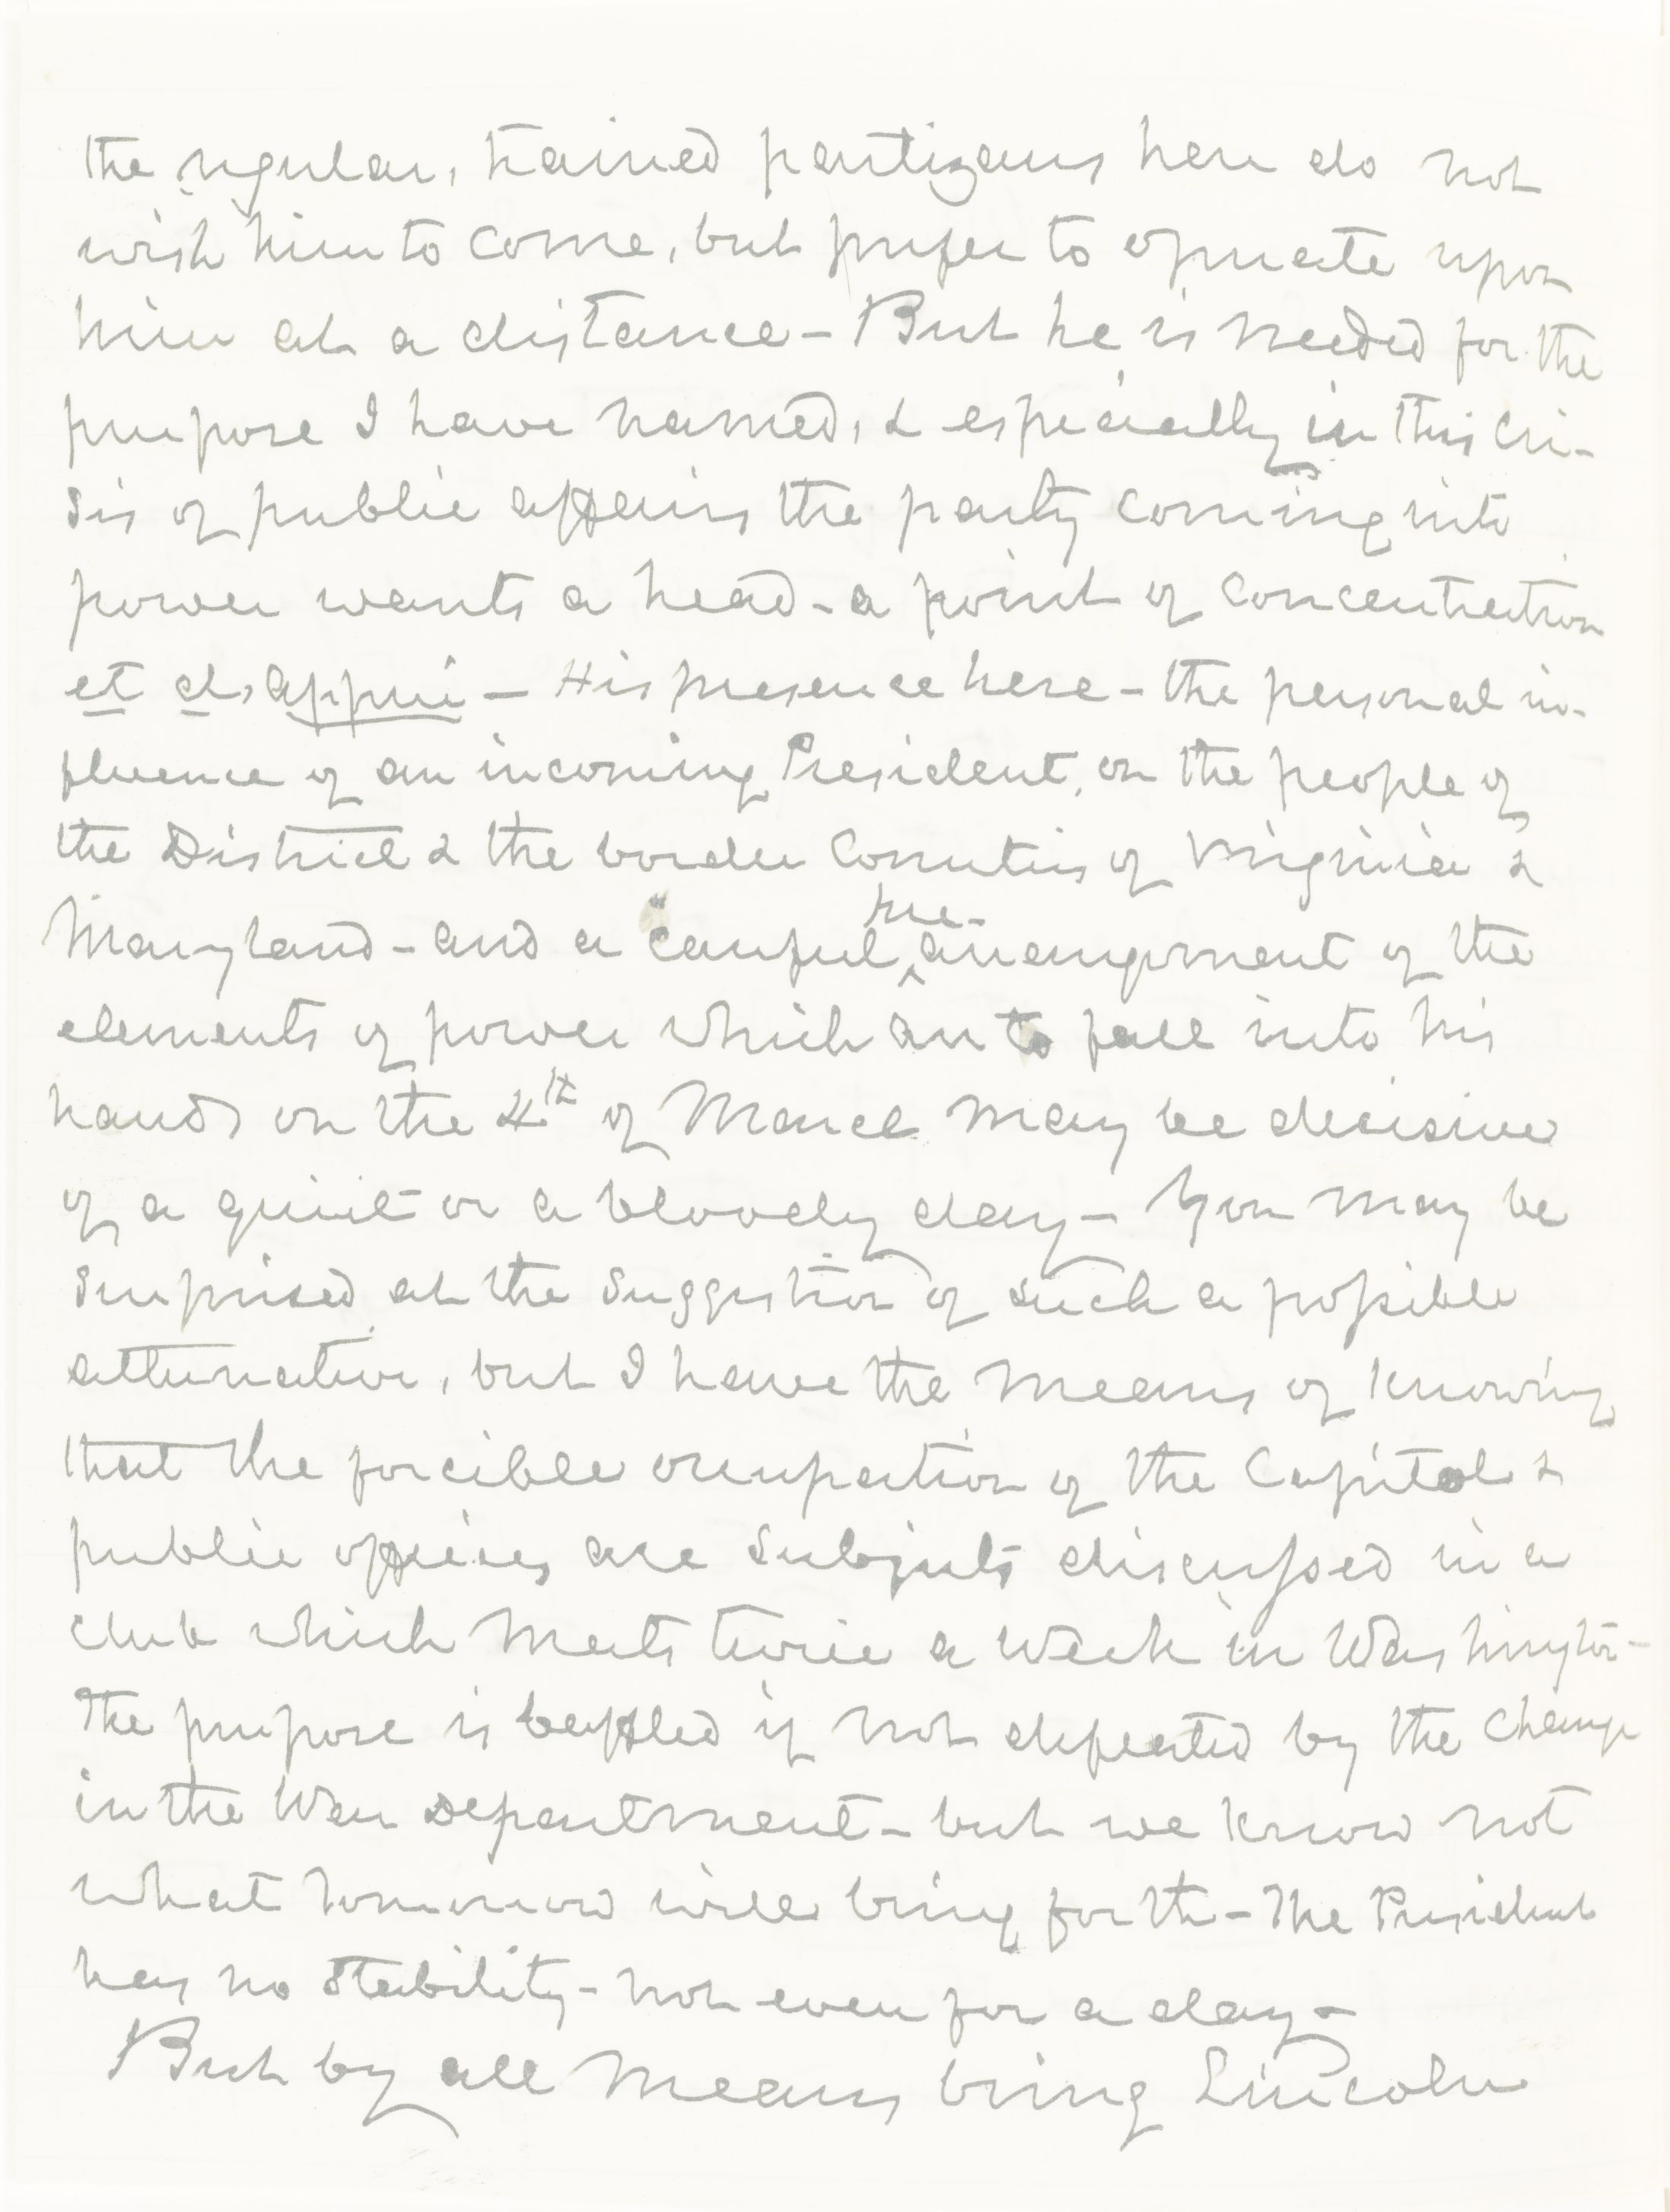 the regular, trained partizans here do not
wish him to come, but prefer to operate upon
him at a distance – But he is needed for the
purpose I have named, & especially in this cri-
sis of public affairs the party coming into
power wants a head – a point of concentration
et d'appui – His presence here – the personal in-
fluence of an incoming President, on the people of
the District & the border Counties of Virginia &
Maryland – and a careful pre-arrangement of the
elements of power which are to fall into his
hands on the 4th of March may be decisive
of a quiet or a bloody day – You may be
surprised at the suggestion of such a possible
alternative, but I have the means of knowing
that the forcible occupation of the Capitol &
public offices are subjects discussed in a
club which meets twice a week in Washington –
The purpose is baffled if not defeated by the change
in the War Department – but we know not
what tomorrow will bring forth – The President
has no stability – not even for a day –
But by all means bring Lincoln